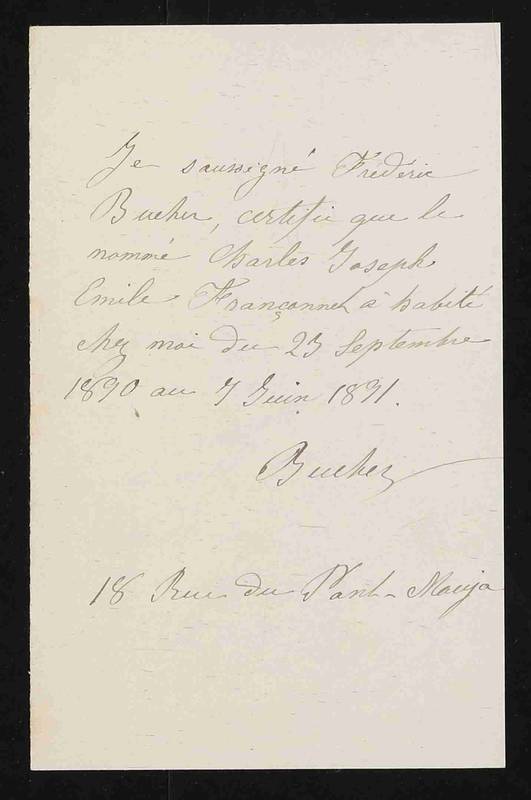 Je soussigné Frédéric
Bucher, certifie que le
nommé Charles Joseph
Emile Françonnet à habité
chez moi du 23 Septembre
1890 au 7 Juin 1891.
Bucher
18 Rue du Pont-Mouja